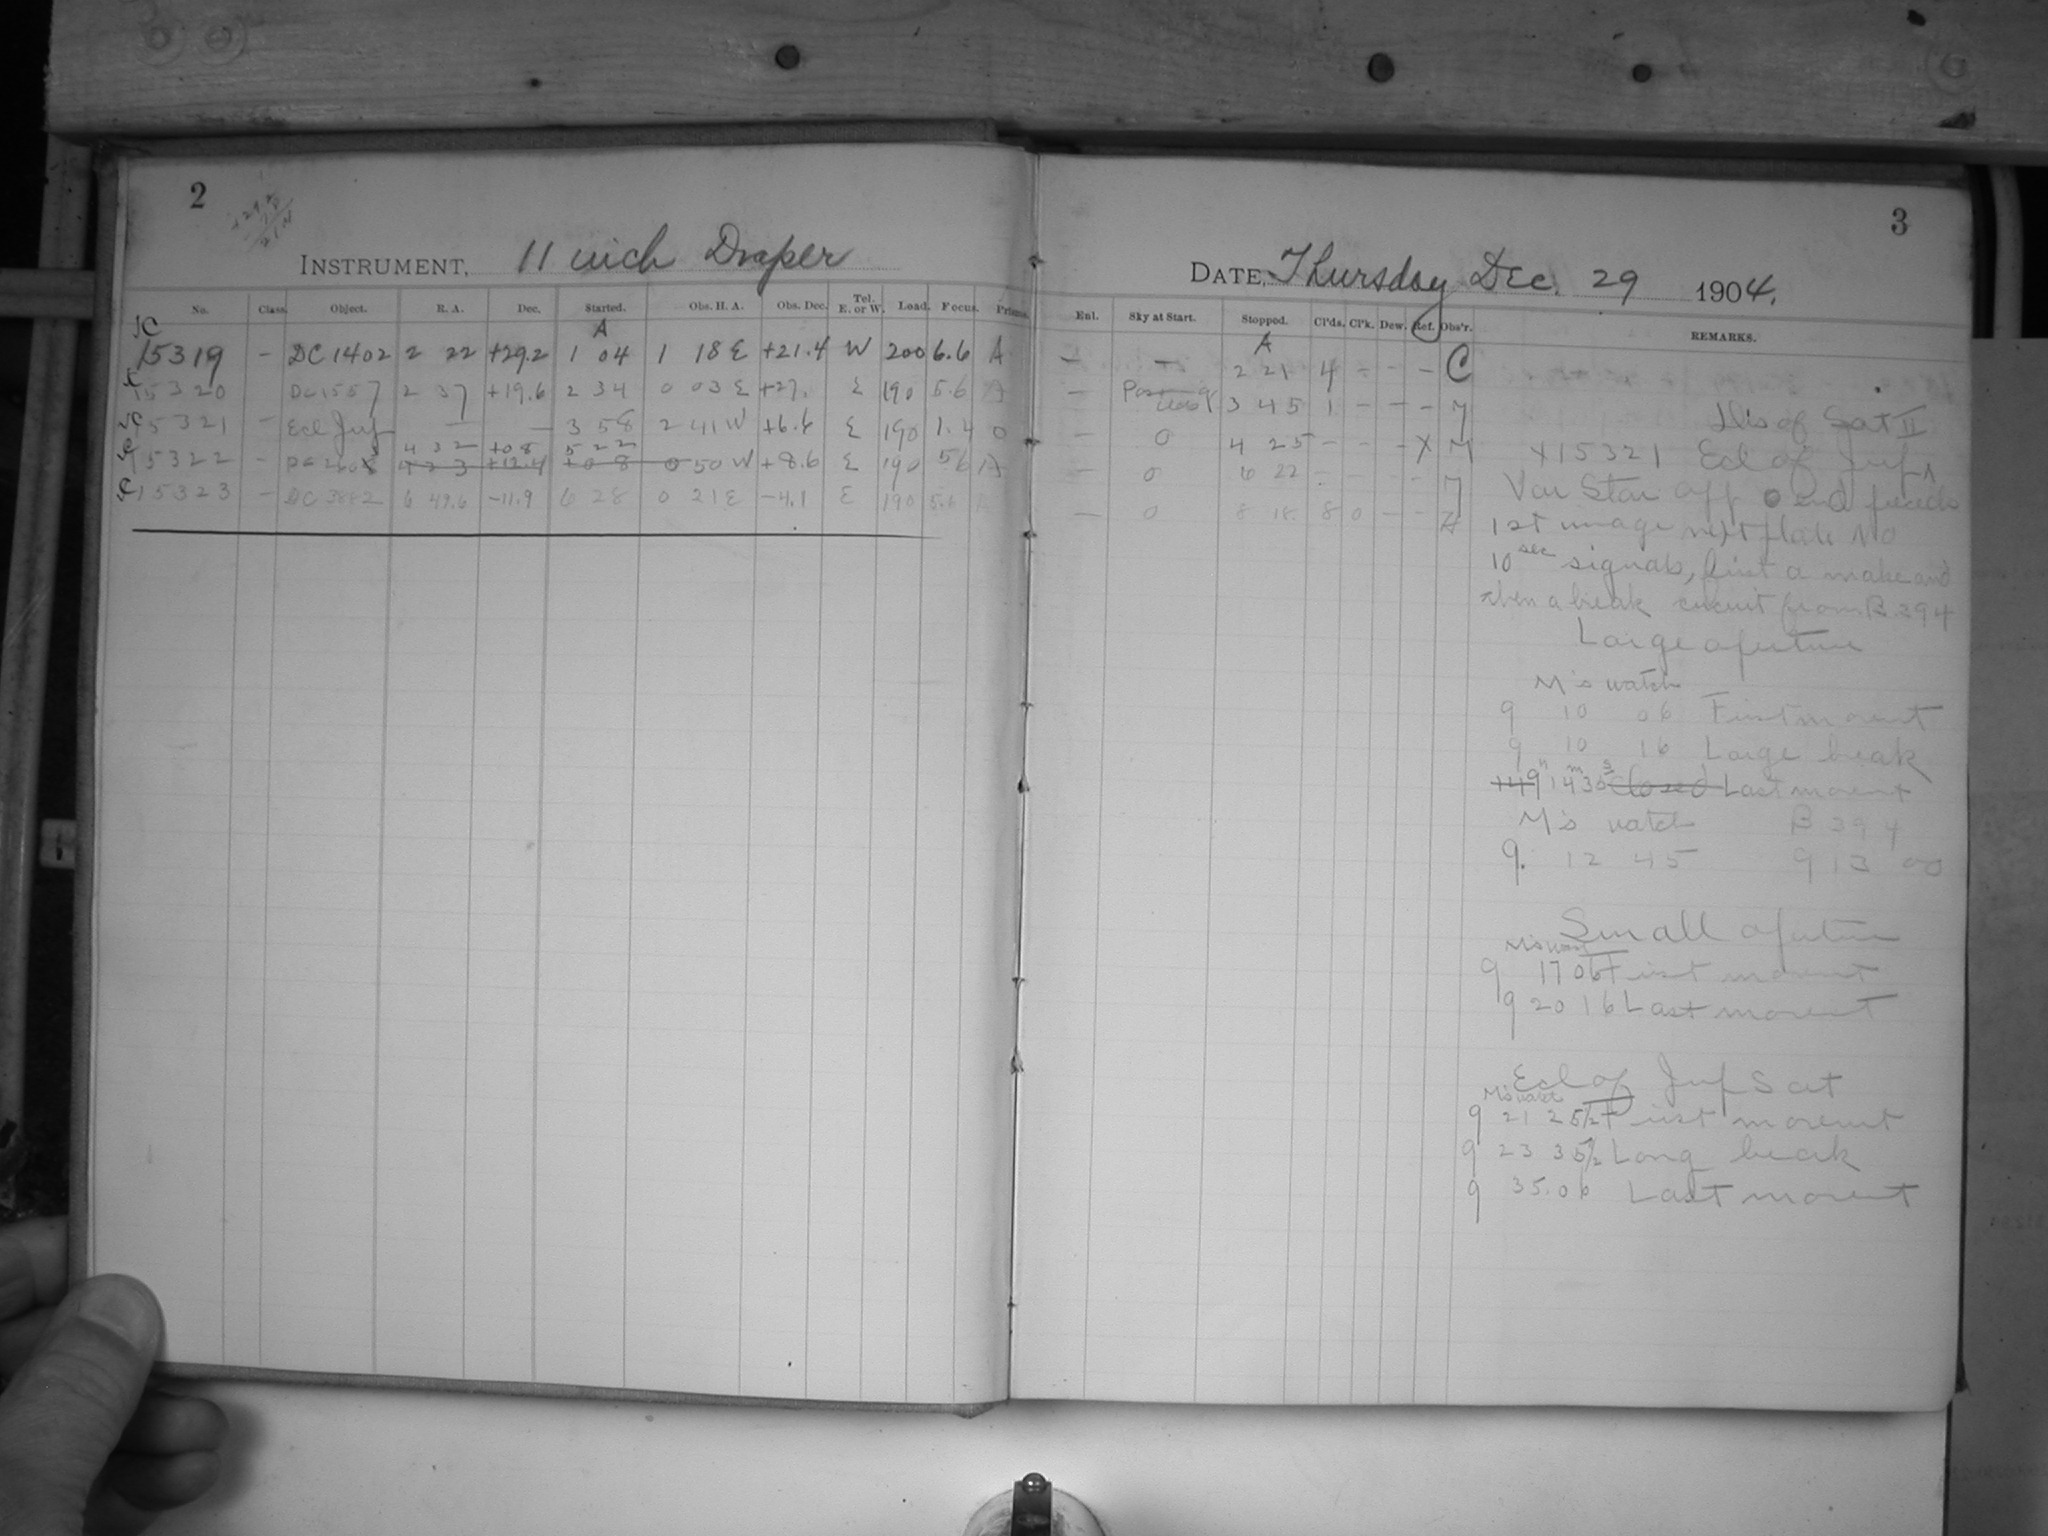 2
INSTRUMENT, 11 inch Draper
No. Class. Object. R. A. Dec. Started. Obs. H. A. Obs. Dec. Tel. E. or W. Load. Focus. Prisms.
A
JC 15319 – DC 1402 2 22 +29.2 1 04 1 18 E +21.4 W 200 6.6 A
15320 DC 1557 2 37 +19.6 2 34 0 03 E +27. E 190 5.6 A
15321 – Ecl Jup — — 3 58 2 41 W +6.8 E 190 1.4 0
4 32 +08 5 22
15322 – 4 23 +12.4 +0 8 0 50 W +8.6 E 190 56 A
15323 – DC 3882 6 49.6 –11.9 6 28 0 21 E –4.1 E 190 5.6
3
DATE, Thursday Dec. 29 1904.
Enl. Sky at Start. Stopped. Cl'ds. Cl'k. Dew. Ref. Obs'r. REMARKS.
A
– – 2 21 4 – – – C
– 3 45 1 – – –
– 0 4 25 – – – X M
– 0 6 22 – – –
– 0 8 18 8 0 – –
Dis of Sat II
X15321 Ecl of Jup
Var Star app 0 end precedes
1st image next plate No
10 sec signals, first a make and
then a break circuit from B. 394
Large aperture
M's watch
9 10 06 First movent
9 10 16 Large break
H m s
+49 1435 Closed Last movent
M's watch B 394
9. 12 45 9 13 00
Small aperture
M's watch
9 17 06 First movent
9 20 16 Last movent
Ecl of Jup Sat
M's watch
9 21 25½ First movent
9 23 35½ Long break
9 35.06 Last movent